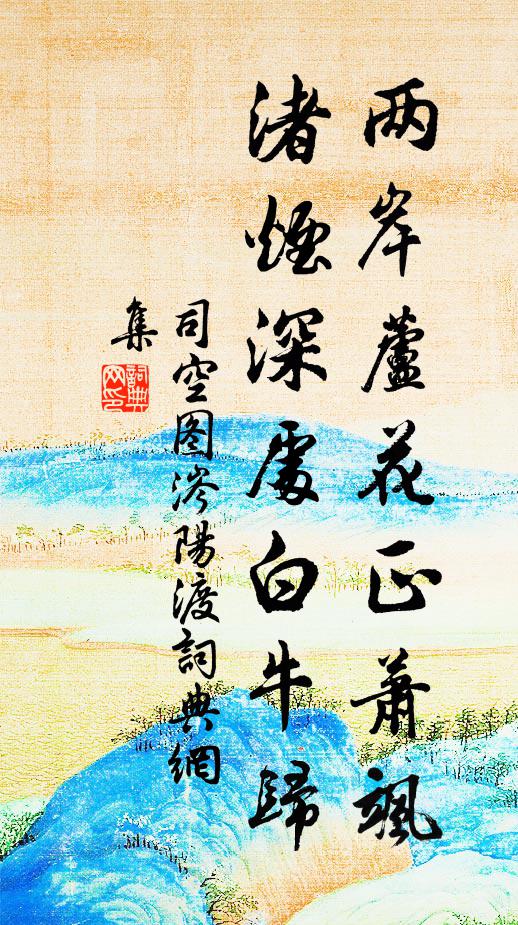 两岸蘆花正蕭颯
渚煙深處白牛歸
司空图涔陽渡詞典網
集
詞典
网印